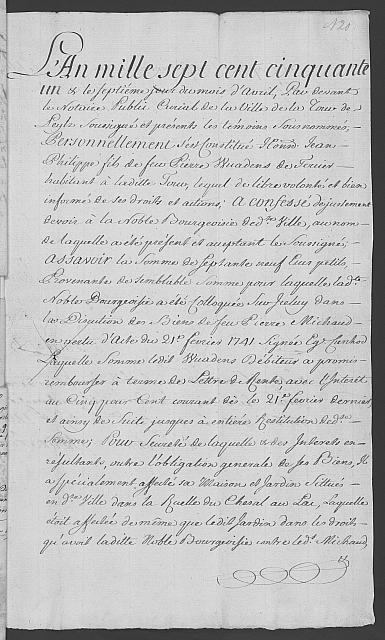 N 20
L'An mille sept cent cinquante
un & le septieme jour du mois d'Avril, Par devant
le Notaire Public Curial de la Ville de la Tour de
Peylz Soussigné et presents les témoins Sousnommés, –
Personnellement s'est Constitué Honn. Jean
Philippe fils de feu Pierre Wuadens de
habitant à ladite Tour, lequel de libre volonté et bien
informé de ses droits et actions; a confessé dujustement
devoir à la Noble Bourgeoisie de d.te Ville, au nom
de laquelle a été présent et acceptant le Soussigné; –
assavoir la Somme de Septante neuf Ecus petits, –
Provenante de semblable Somme pour laquelle lad.te
Noble Bourgeoisie a été Colloquée Sur Iceluy dans –
la Discution des Biens de feu Pierre Michaud –
en vertu d'Acte du 21.e février 1741 Signée Cunhod
Laquelle Somme ledit Wuadens Débiteur a promis –
rembourser à terme de Lettre de Rente avec l'Interêt
au Cinq pour Cent courant dès le 21.e février dernier
et ainsy de Suite jusques à entiere Restitution de d.te
Somme; Pour Sureté de laquelle & des Interets en –
résultants, outre l'obligation generale de Ses Biens, Il
a spécialement affecté sa Maison et Jardin Situés –
en d.te Ville dans la Ruelle du Cheval au Lac, Laquelle
étoit affectée de même que ledit Jardin dans le droit –
qu'avoit ladite Noble Bourgeoisie contre led.t Michaud,